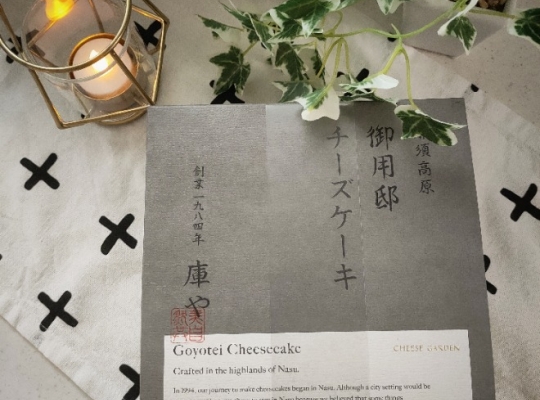 須高原
御用邸
チーズケーキ
創業一九八四年
庫や
Goyotei Cheesecake
CHEESE GARDEN
Crafted in the highlands of Nasu.
In 1994, our journey to make cheesecakes began in Nasu. Although a city setting would be
in Nasu because we believed that some things